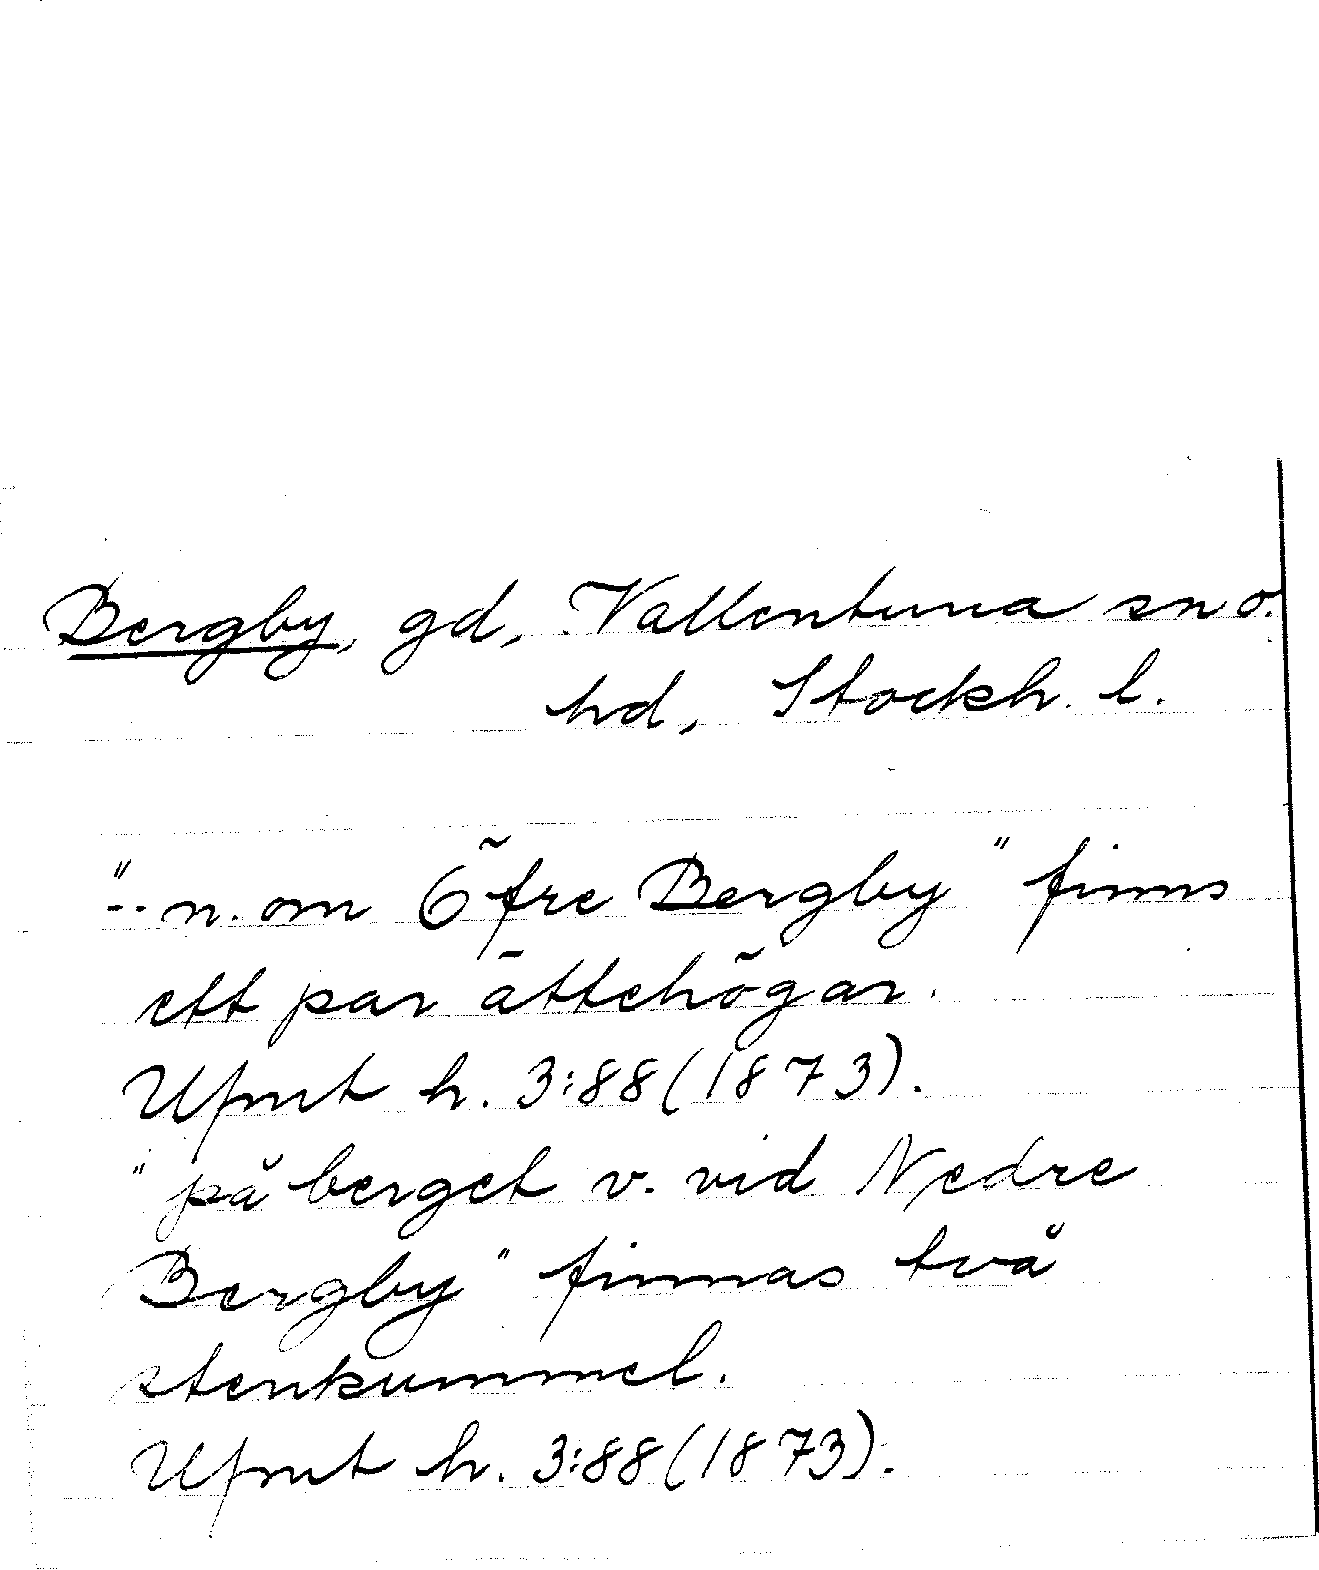 Bergby, gd, Vallentuna sn o.
hd, Stockh. l.
"-- n. om Öfre Bergby" finns
ett par ättehögar.
Ufmt h. 3:88 (1873).
"på berget v. vid Nedre
Bergby" finnas två
stenkummel.
Ufmt h. 3:88 (1873).